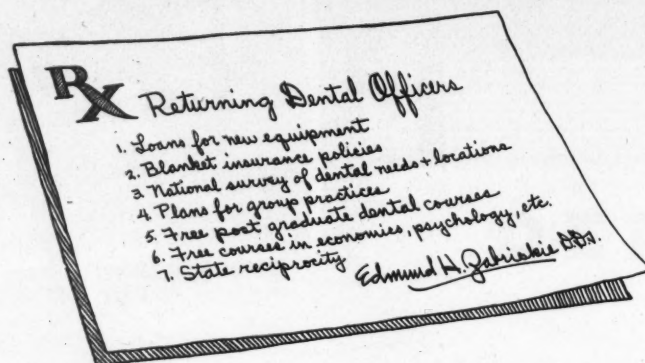 Rx Returning Dental Officers
1. Loans for new equipment
2. Blanket insurance policies
3. National survey of dental needs + locations
4. Plans for group practices
5. Free post graduate dental courses
6. Free courses in economics, psychology, etc.
7. State reciprocity
Edmund H. Zabriskie D.D.S.